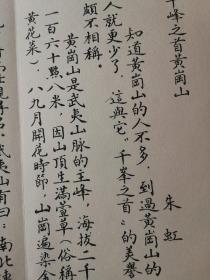 千峰之首黄崗山
朱虹
知道黄崗山的人不多，到過黄崗山的
人就更少了，這與它“千峰之首”的美譽
頗不相稱。
黄崗山是武夷山脈的主峰，海拔二千
一百六十點八米，因山頂生滿萱草（俗稱
黄花菜），八九月開花時節，山崗遍染金
武夷山有曰：南北